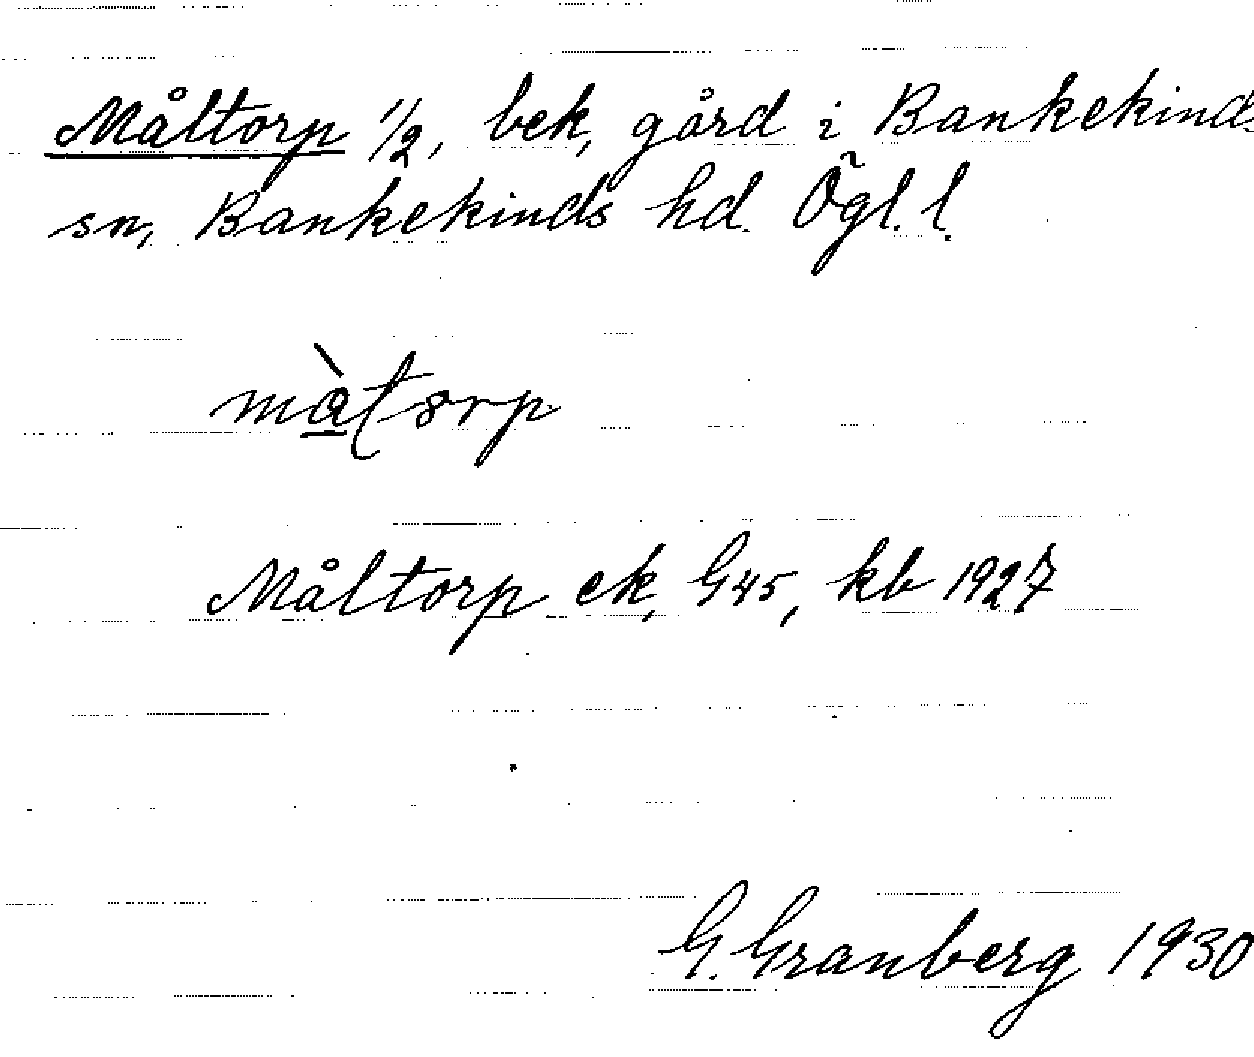 Måltorp 1/2, bek. gård i Bankekinds
sn, Bankekinds hd. Ögl. l.
Måltorp ek. G45, kb 1927
G. Granberg 1930